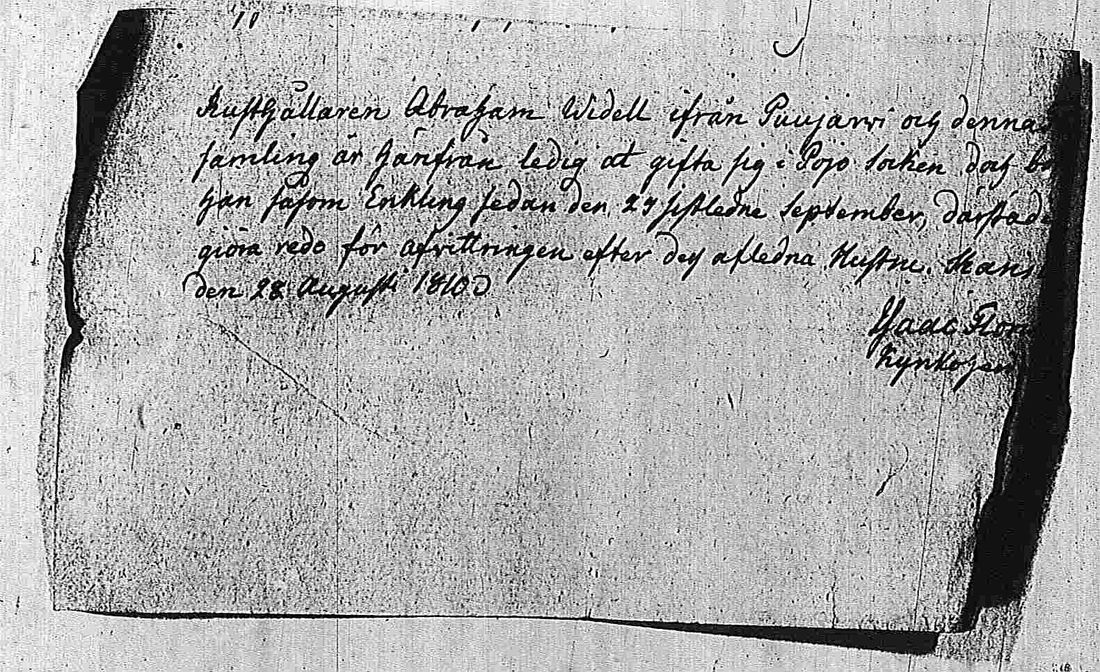 Rusthållaren Abraham Widell ifrån Puujarwi och denna
samling är härifrån ledig at gifta sig i Pojo Socken doch
han såsom Enkling sedan den 27 sistledne September, därstädes
giöra redo för afvittringen efter dess afledna Hustru.
den 28 Augusti 1810
Isaac